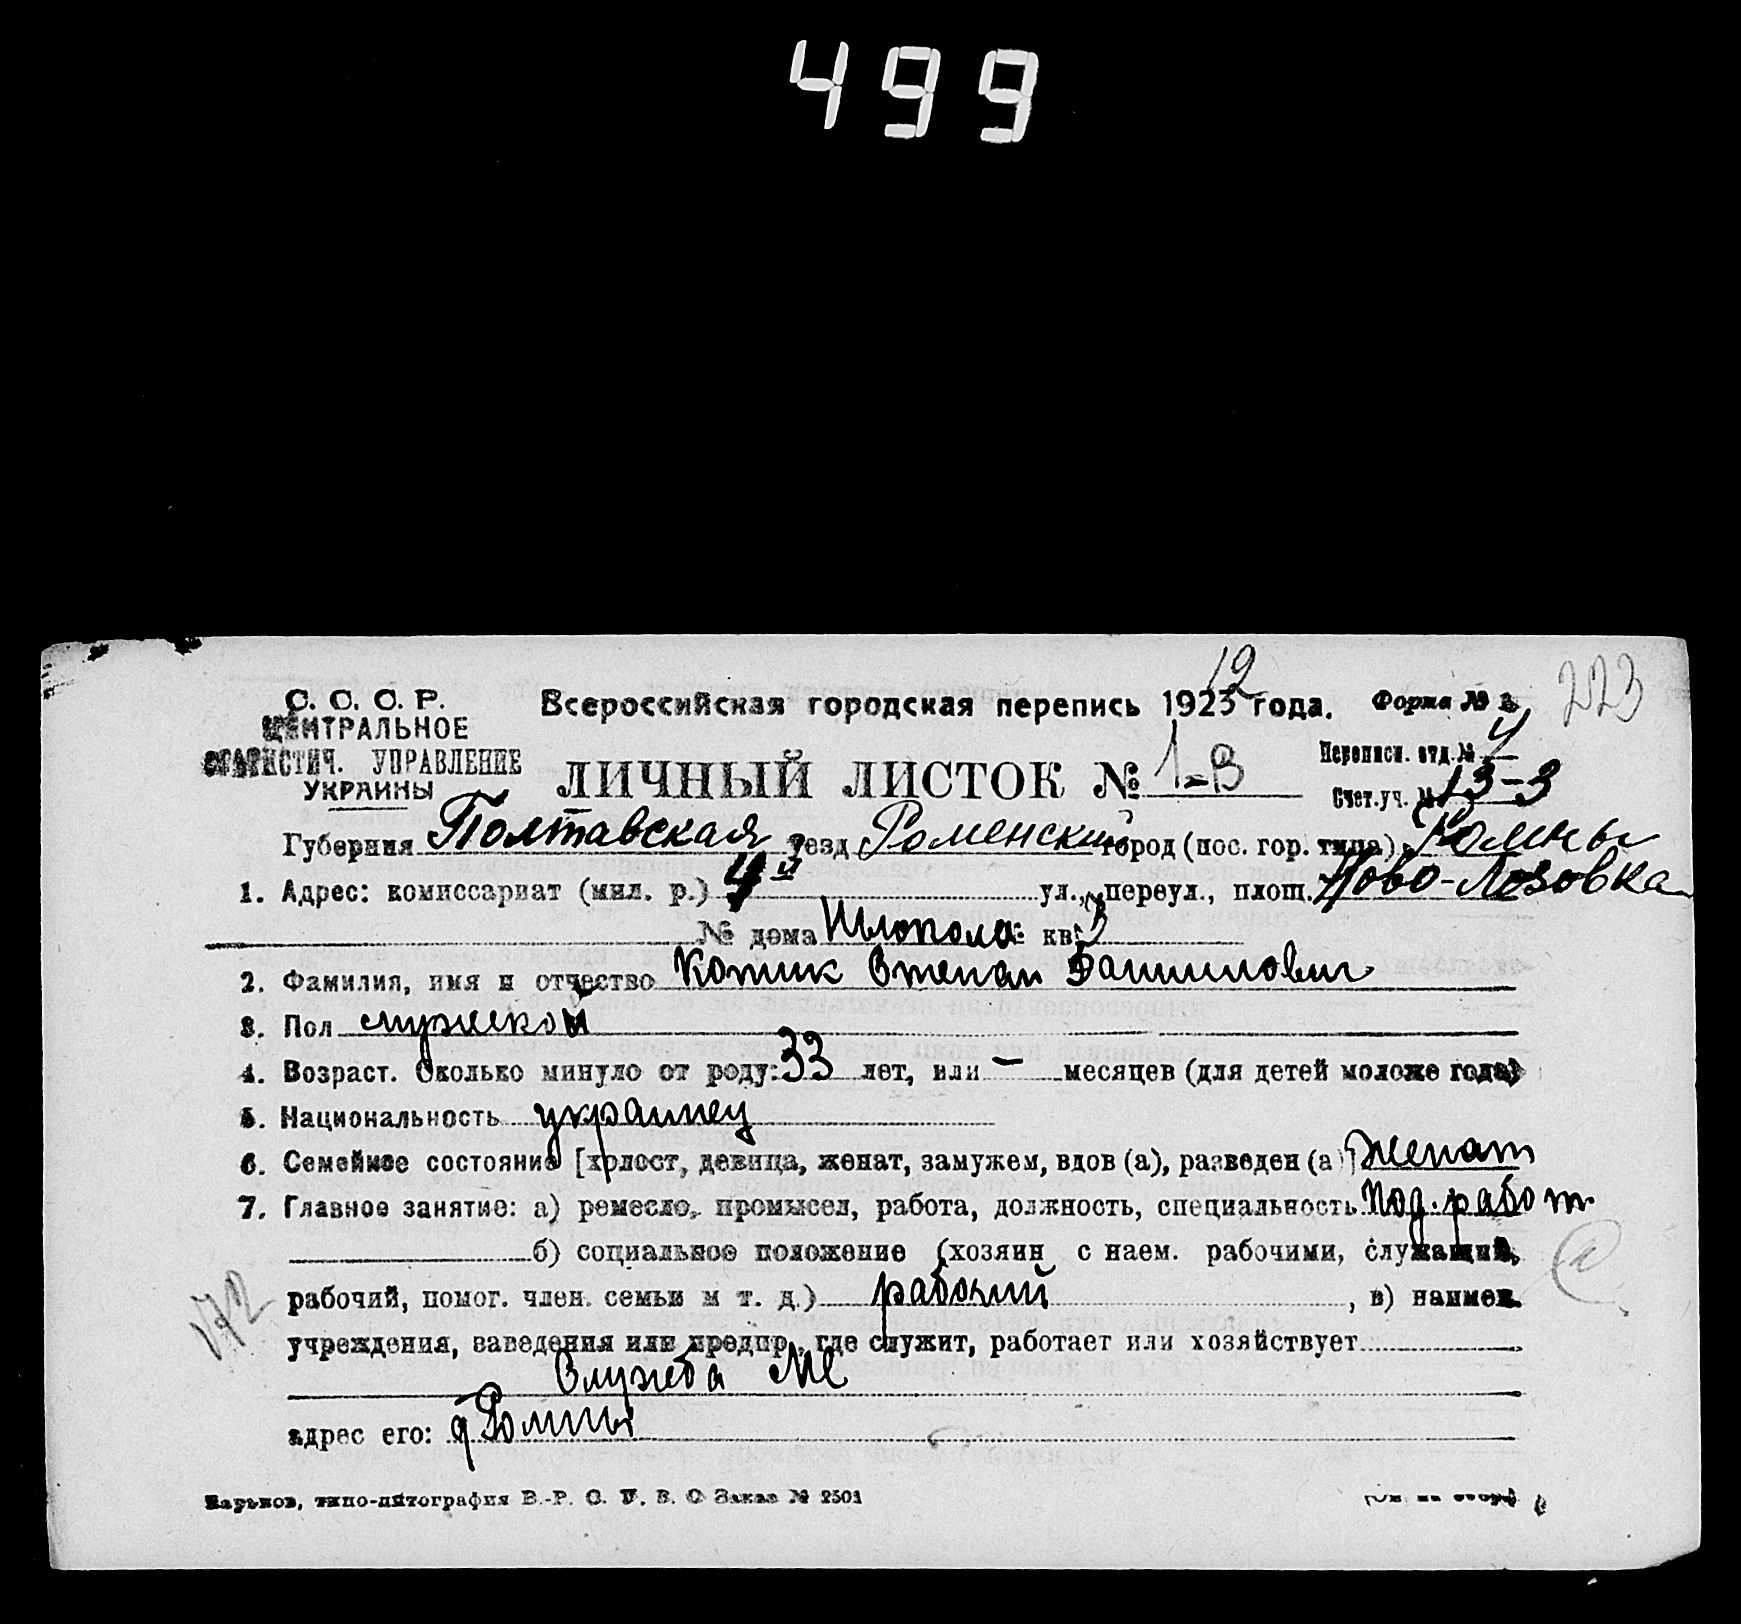 499
12
223
С. С. С. Р.
ЦЕНТРАЛЬНОЕ
СТАТИСТИЧ. УПРАВЛЕНИЕ
УКРАИНЫ
Всероссийская городская перепись 1923 года. Форма №
ЛИЧНЫЙ ЛИСТОК № 1-В
Переписн. отд. № 4
Счет. уч. № 13-3
Губерния Полтавская уезд Роменский город (пос. гор. типа) Ромны
1. Адрес: комиссариат (мил. р.) 4й ул., переул., площ. Ново-Лозовка
№ дома кв. 3
2. Фамилия, имя и отчество Котик Степан
3. Пол мужской
4. Возраст. Сколько минуло от роду: 33 лет, или — месяцев (для детей моложе года)
5. Национальность украинец
6. Семейное состояние [холост, девица, женат, замужем, вдов (а), разведен (а)] женат
7. Главное занятие: а) ремесло, промысел, работа, должность, специальность Под. работ.
б) социальное положение (хозяин с наем. рабочими, служащий,
рабочий, помог. член. семьи и т. д.) рабочий, в) наимен.
172
учреждения, заведения или предпр., где служит, работает или хозяйствует
Служба
адрес его: Ромны
Харьков, типо-литография В.-Р. С. У. В. О Заказ № 2501